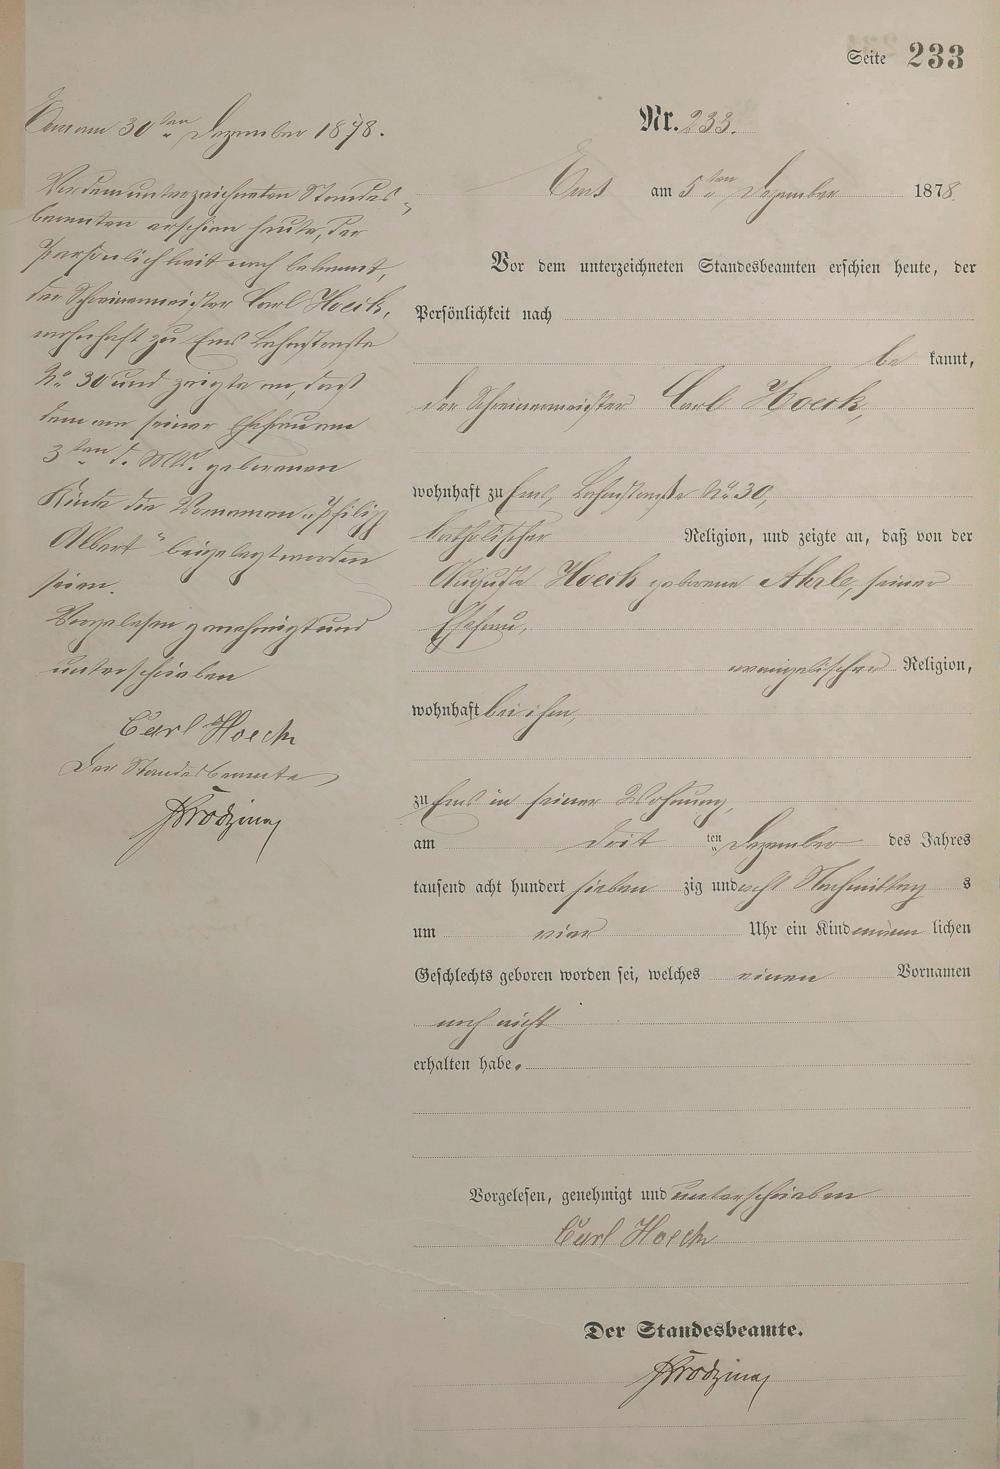 Seite 233
Nr. 233.
Ems am 5ten Dezember 1878.
Vor dem unterzeichneten Standesbeamten erschien heute, der
Persönlichkeit nach
be kannt,
der Schreinermeister Carl Hoeck,
wohnhaft zu Ems, Lahnstraße No. 30,
katholischer Religion, und zeigte an, daß von der
Auguste Hoeck geborene Ahrle, seiner
Ehefrau,
evangelischer Religion,
wohnhaft bei ihm,
zu Ems in seiner Wohnung,
am dritten Dezember des Jahres
tausend acht hundert sieben zig und acht Nachmittag s
um vier Uhr ein Kind männ lichen
Geschlechts geboren worden sei, welches einen Vornamen
noch nicht
erhalten habe.
Vorgelesen, genehmigt und unterschrieben
Carl Hoeck
Der Standesbeamte.
Ems am 30ten Dezember 1878.
Vor dem unterzeichneten Standes-
beamten erschien heute, der
Persönlichkeit nach bekannt,
der Schreinermeister Carl Hoeck,
wohnhaft zu Ems Lahnstraße
No. 30 und zeigte an, daß
dem von seiner Ehefrau am
3ten d. Mts. geborenen
Kinde die Vornamen „Philipp
Albert“ beigelegt worden
seien.
Vorgelesen genehmigt und
unterschrieben
Carl Hoeck
Der Standesbeamte